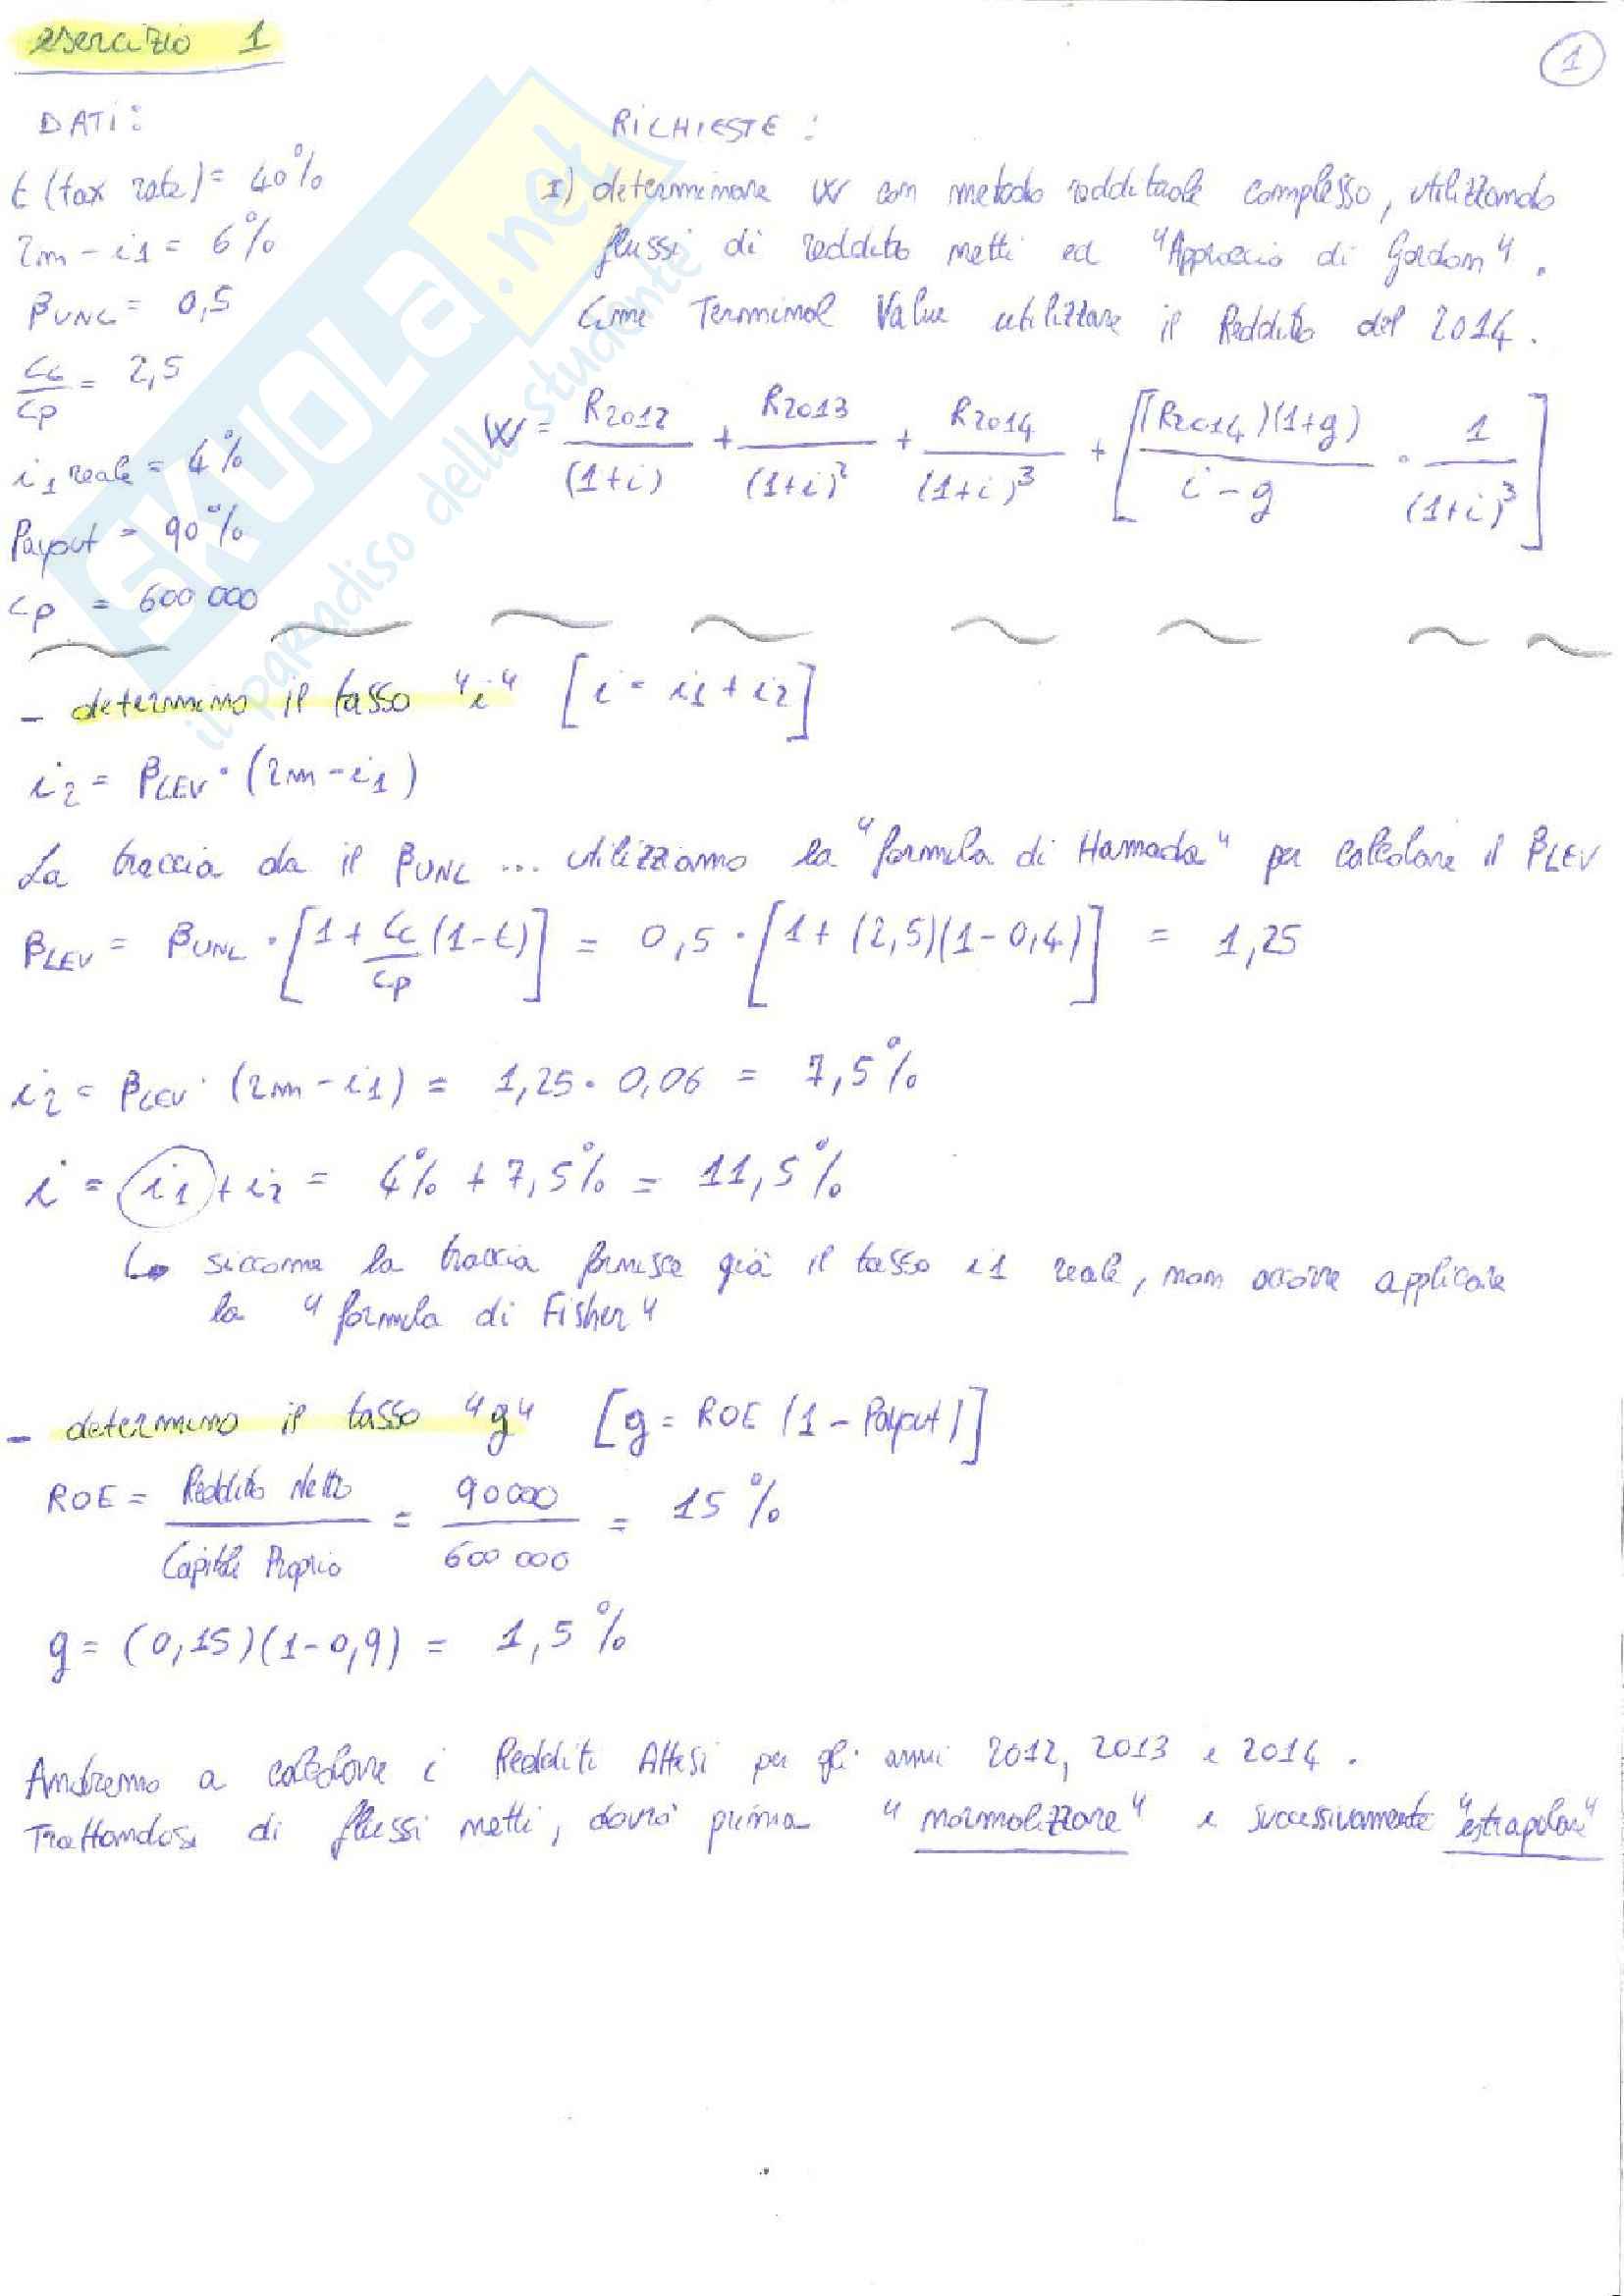 esercizio 1
1
DATI:
t (tax rate) = 40%
rm - i1 = 6%
βUNL = 0,5
Cc/Cp = 2,5
i1 reale = 4%
Payout = 90%
Cp = 600 000
RICHIESTE:
I) determinare W con metodo reddituale complesso, utilizzando
flussi di reddito netti ed "Approccio di Gordon".
Come Terminal Value utilizzare il Reddito del 2014.
W = R2012/(1+i) + R2013/(1+i)² + R2014/(1+i)³ + [(R2014)(1+g)/i-g · 1/(1+i)³]
SKUOLA.net
il paradiso dello studente
- determino il tasso "i" [i = i1 + i2]
i2 = βLEV · (rm - i1)
La traccia da il βUNL ... utilizziamo la "formula di Hamada" per calcolare il βLEV
βLEV = βUNL · [1 + Cc/Cp (1-t)] = 0,5 · [1 + (2,5)(1-0,4)] = 1,25
i2 = βLEV · (rm - i1) = 1,25 · 0,06 = 7,5%
i = i1 + i2 = 4% + 7,5% = 11,5%
↳ siccome la traccia fornisce già il tasso i1 reale, non occorre applicare
la "formula di Fisher"
- determino il tasso "g" [g = ROE (1 - Payout)]
ROE = Reddito Netto/Capitale Proprio = 90000/600 000 = 15%
g = (0,15)(1-0,9) = 1,5%
Andremo a calcolare i Redditi Attesi per gli anni 2012, 2013 e 2014.
Trattandosi di flussi netti, dovrò prima "normalizzare" e successivamente "estrapolare"